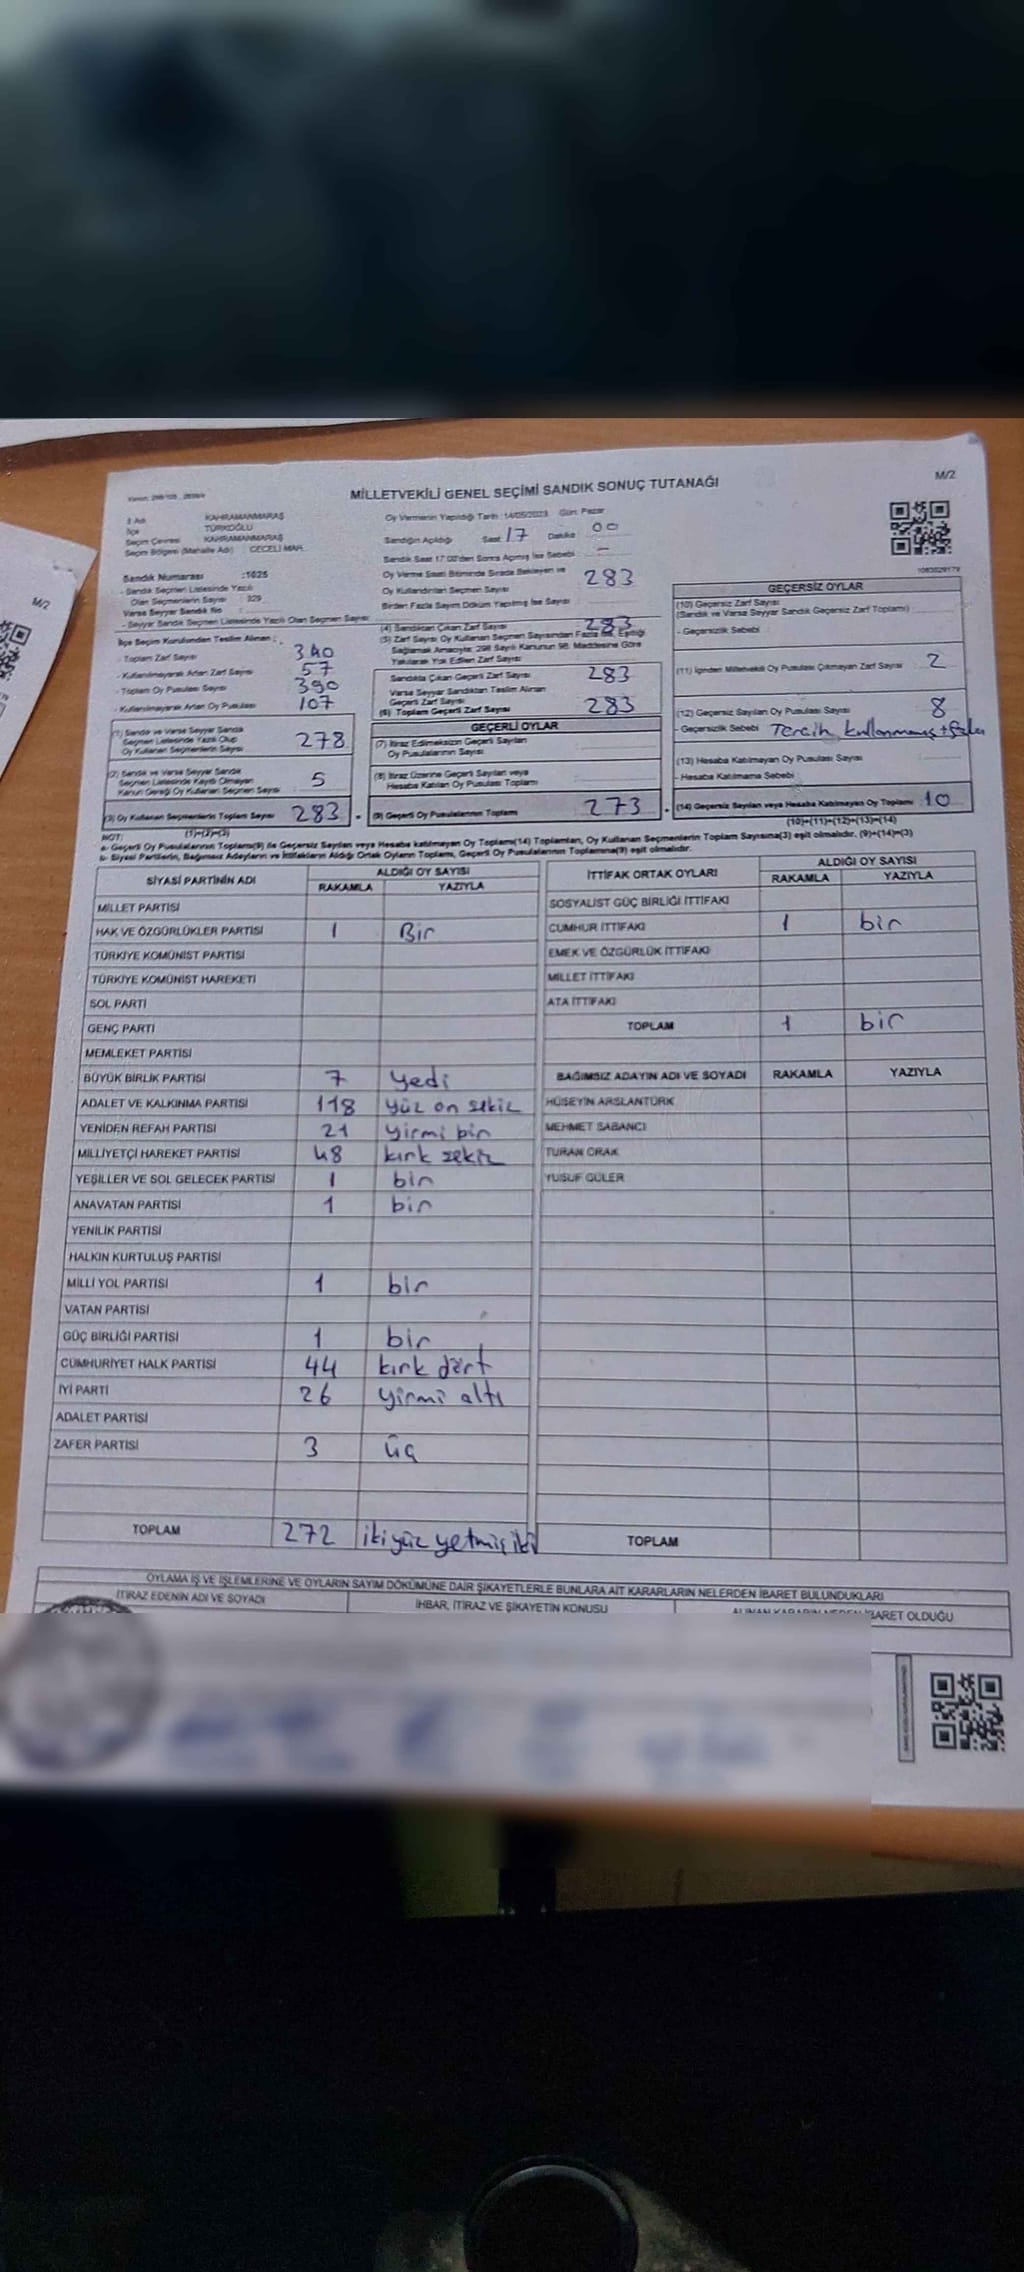 M/2
MİLLETVEKİLİ GENEL SEÇİMİ SANDIK SONUÇ TUTANAĞI
M/2
İl Adı KAHRAMANMARAŞ
İlçe TÜRKOĞLU
Seçim Çevresi KAHRAMANMARAŞ
Seçim Bölgesi (Mahalle Adı) CECELİ MAH.
Oy Vermenin Yapıldığı Tarih : 14/05/2023 Gün: Pazar
Sandığın Açıldığı Saat 17 Dakika 00
Sandık Saat 17:00'den Sonra Açılmış İse Sebebi –
Sandık Numarası :1025
- Sandık Seçmen Listesinde Yazılı
Olan Seçmenlerin Sayısı : 329
Varsa Seyyar Sandık No :
- Seyyar Sandık Seçmen Listesinde Yazılı Olan Seçmen Sayısı:
Oy Verme Saati Bitiminde Sırada Bekleyen ve
Oy Kullandırılan Seçmen Sayısı 283
Birden Fazla Sayım Döküm Yapılmış İse Sayısı
İlçe Seçim Kurulundan Teslim Alınan :
- Toplam Zarf Sayısı 340
- Kullanılmayarak Artan Zarf Sayısı 57
- Toplam Oy Pusulası Sayısı 390
- Kullanılmayarak Artan Oy Pusulası 107
(1) Sandık ve Varsa Seyyar Sandık
Seçmen Listesinde Yazılı Olup
Oy Kullanan Seçmenlerin Sayısı 278
(2) Sandık ve Varsa Seyyar Sandık
Seçmen Listesinde Kayıtlı Olmayan
Kanun Gereği Oy Kullanan Seçmen Sayısı 5
(3) Oy Kullanan Seçmenlerin Toplam Sayısı 283
(1)+(2)=(3)
(4) Sandıktan Çıkan Zarf Sayısı 283
(5) Zarf Sayısı Oy Kullanan Seçmen Sayısından Fazla İse, Eşitliği
Sağlamak Amacıyla; 298 Sayılı Kanunun 98. Maddesine Göre
Yakılarak Yok Edilen Zarf Sayısı
Sandıkta Çıkan Geçerli Zarf Sayısı 283
Varsa Seyyar Sandıktan Teslim Alınan
Geçerli Zarf Sayısı
(6) Toplam Geçerli Zarf Sayısı 283
GEÇERLİ OYLAR
(7) İtiraz Edilmeksizin Geçerli Sayılan
Oy Pusulalarının Sayısı
(8) İtiraz Üzerine Geçerli Sayılan veya
Hesaba Katılan Oy Pusulası Toplamı
(9) Geçerli Oy Pusulalarının Toplamı 273
GEÇERSİZ OYLAR
(10) Geçersiz Zarf Sayısı
(Sandık ve Varsa Seyyar Sandık Geçersiz Zarf Toplamı)
- Geçersizlik Sebebi
(11) İçinden Milletvekili Oy Pusulası Çıkmayan Zarf Sayısı 2
(12) Geçersiz Sayılan Oy Pusulası Sayısı 8
- Geçersizlik Sebebi Tercih kullanmamış +
(13) Hesaba Katılmayan Oy Pusulası Sayısı
- Hesaba Katılmama Sebebi
(14) Geçersiz Sayılan veya Hesaba Katılmayan Oy Toplamı 10
(10)+(11)+(12)+(13)=(14)
NOT:
a- Geçerli Oy Pusulalarının Toplamı(9) ile Geçersiz Sayılan veya Hesaba katılmayan Oy Toplamı(14) Toplamları, Oy Kullanan Seçmenlerin Toplam Sayısına(3) eşit olmalıdır. (9)+(14)=(3)
b- Siyasi Partilerin, Bağımsız Adayların ve İttifakların Aldığı Ortak Oyların Toplamı, Geçerli Oy Pusulalarının Toplamına(9) eşit olmalıdır.
SİYASİ PARTİNİN ADI ALDIĞI OY SAYISI
RAKAMLA YAZIYLA
MİLLET PARTİSİ
HAK VE ÖZGÜRLÜKLER PARTİSİ 1 Bir
TÜRKİYE KOMÜNİST PARTİSİ
TÜRKİYE KOMÜNİST HAREKETİ
SOL PARTİ
GENÇ PARTİ
MEMLEKET PARTİSİ
BÜYÜK BİRLİK PARTİSİ 7 yedi
ADALET VE KALKINMA PARTİSİ 118 yüz on sekiz
YENİDEN REFAH PARTİSİ 21 yirmi bin
MİLLİYETÇİ HAREKET PARTİSİ 48 kırk sekiz
YEŞİLLER VE SOL GELECEK PARTİSİ 1 bir
ANAVATAN PARTİSİ 1 bir
YENİLİK PARTİSİ
HALKIN KURTULUŞ PARTİSİ
MİLLİ YOL PARTİSİ 1 bir
VATAN PARTİSİ
GÜÇ BİRLİĞİ PARTİSİ 1 bir
CUMHURİYET HALK PARTİSİ 44 kırk dört
İYİ PARTİ 26 yirmi altı
ADALET PARTİSİ
ZAFER PARTİSİ 3 üç
TOPLAM 272 ikiyüz yetmiş iki
İTTİFAK ORTAK OYLARI ALDIĞI OY SAYISI
RAKAMLA YAZIYLA
SOSYALİST GÜÇ BİRLİĞİ İTTİFAKI
CUMHUR İTTİFAKI 1 bir
EMEK VE ÖZGÜRLÜK İTTİFAKI
MİLLET İTTİFAKI
ATA İTTİFAKI
TOPLAM 1 bir
BAĞIMSIZ ADAYIN ADI VE SOYADI RAKAMLA YAZIYLA
HÜSEYİN ARSLANTÜRK
MEHMET SABANCI
TURAN ORAK
YUSUF GÜLER
TOPLAM
OYLAMA İŞ VE İŞLEMLERİNE VE OYLARIN SAYIM DÖKÜMÜNE DAİR ŞİKAYETLERLE BUNLARA AİT KARARLARIN NELERDEN İBARET BULUNDUKLARI
İTİRAZ EDENİN ADI VE SOYADI İHBAR, İTİRAZ VE ŞİKAYETİN KONUSU ALINAN KARARIN NEDEN İBARET OLDUĞU